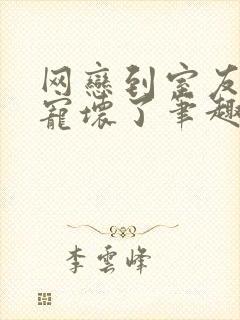 网戀到室友
寵壞了筆趣
李雲峰